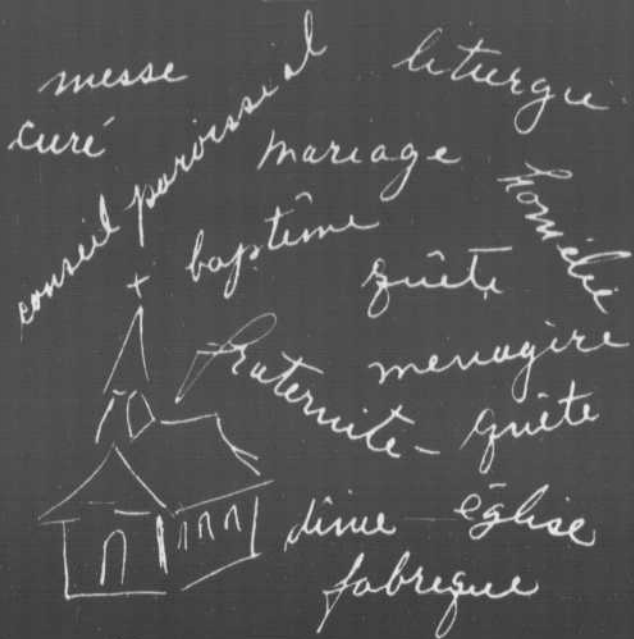 messe
liturgie
curé
conseil paroissial
mariage
homélie
baptême
quête
menagère
fraternité-
quête
dîme
église
fabrique